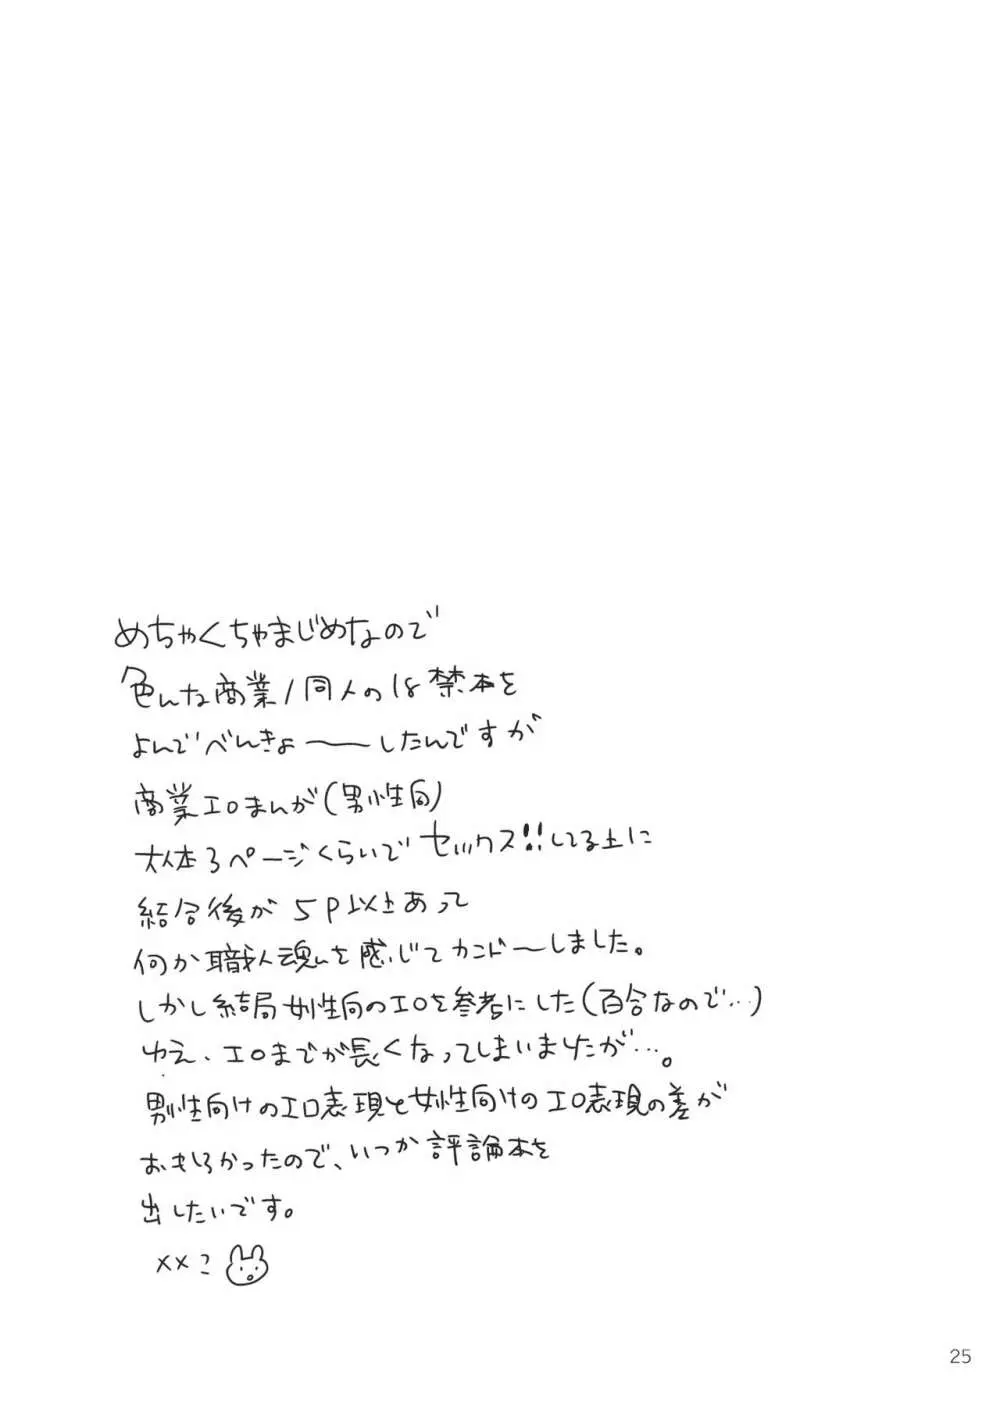 めちゃくちゃまじめなので
色んな商業/同人の18禁本を
よんでべんきょーーしたんですが
商業エロまんが(男性向)
大体3ページくらいでセックス!!してる上に
結合後が5P以上あって
何か職人魂を感じてカンドーしました。
しかし結局女性向のエロを参考にした(百合なので…)
ゆえ、エロまでが長くなってしまいましたが…。
男性向けのエロ表現と女性向けのエロ表現の差が
おもしろかったので、いつか評論本を
出したいです。
××こ
25